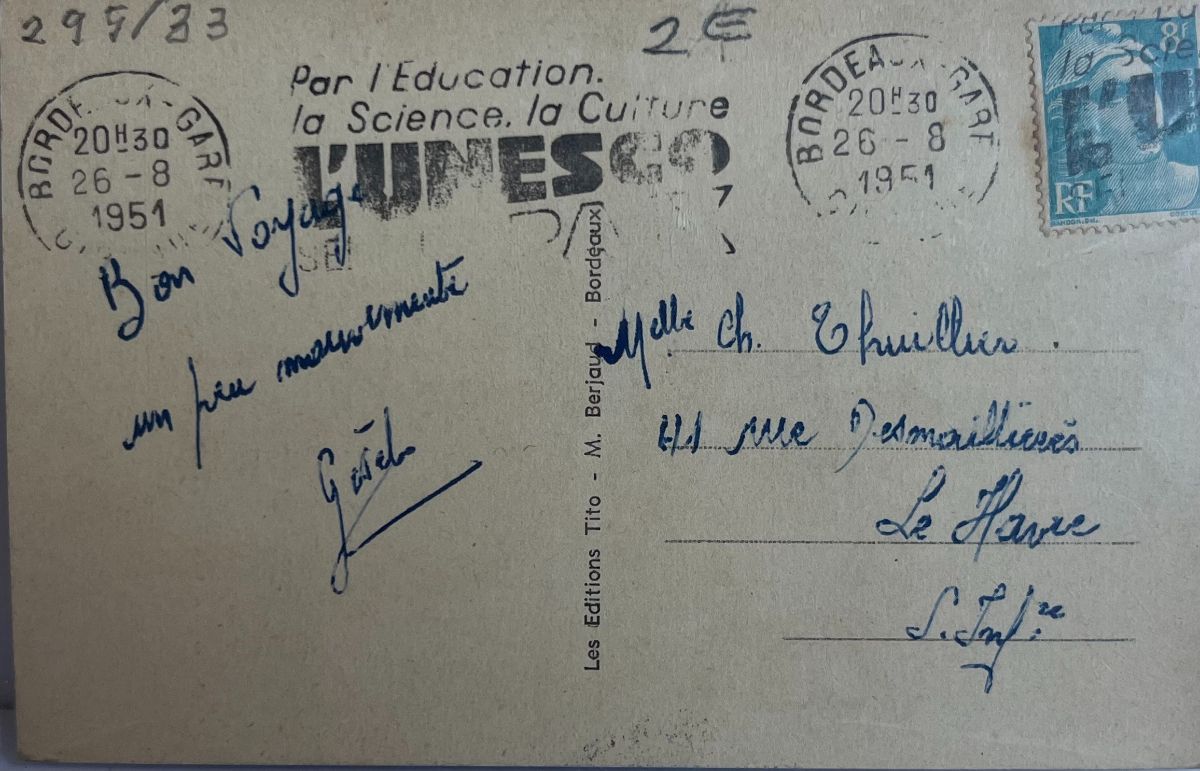 295/33
2€
BORDEAUX-GARE
20H30
26-8
1951
Par l'Education.
la Science, la Culture
L'UNESCO
SE
PA
BORDEAUX-GARE
20H30
26-8
1951
8f
RF
Bon Voyage
un peu mouvementé
Melle Ch. Thuillier.
41 rue Desmaillières
Le Havre
S. Infre
Les Editions Tito - M. Berjaud - Bordeaux